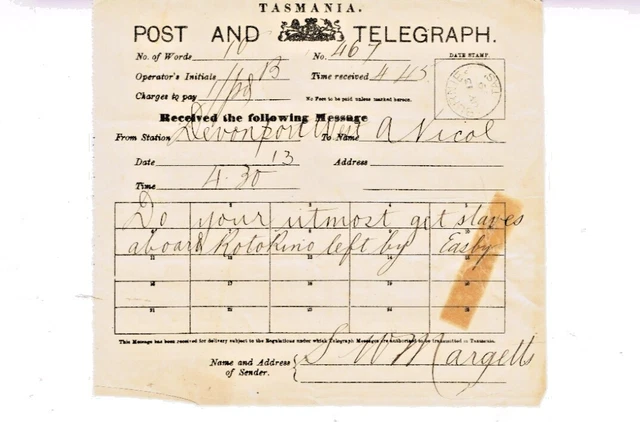 TASMANIA.
POST AND TELEGRAPH.
No. of Words 10 No. 467
DATE STAMP.
Operator's Initials B Time received 4 45
Charges to pay No Fees to be paid unless marked hereon.
Received the following Message
From Station Devonport West To Name A Nicol
Date 13 Address
Time 4.30
Do your utmost get staves
aboard Rotokino left by Easby
This Message has been received for delivery subject to the Regulations under which Telegraph Messages are Authorised to be transmitted in Tasmania.
Name and Address of Sender. S W Margetts